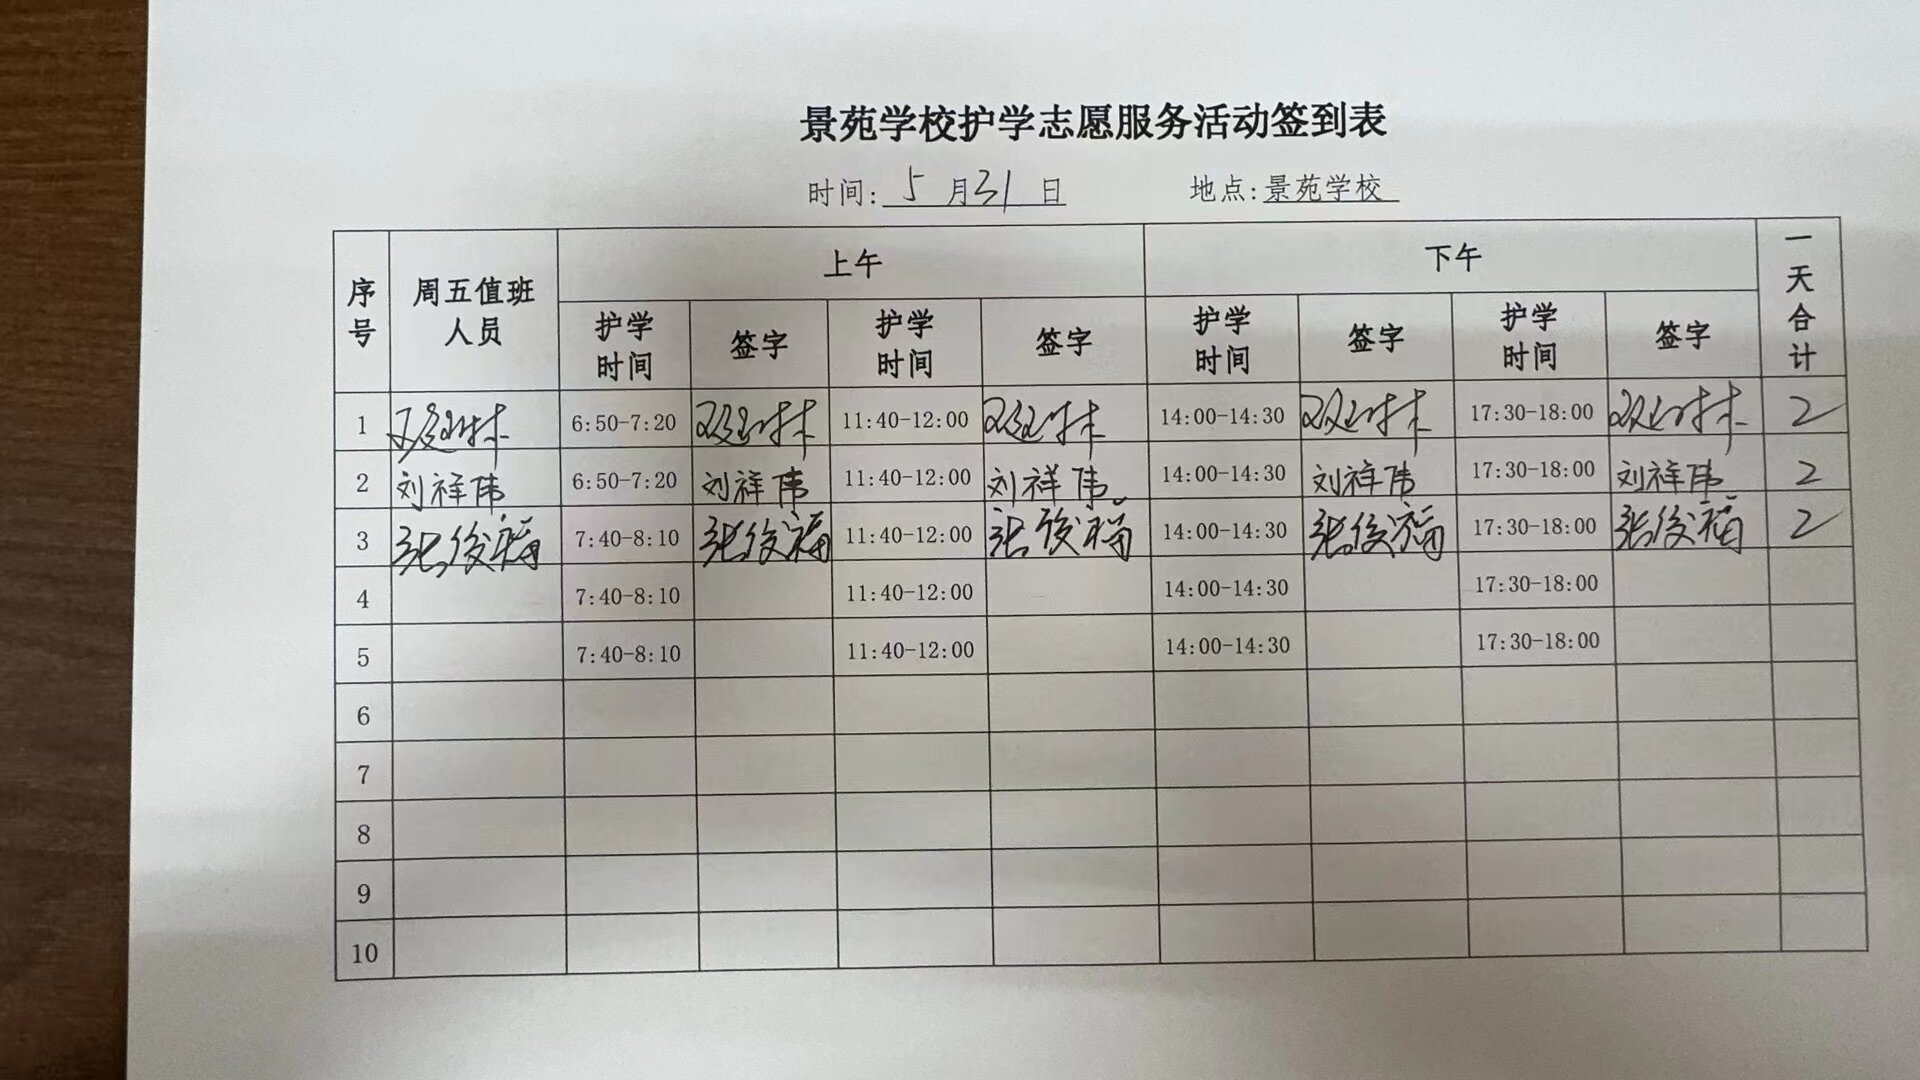 景苑学校护学志愿服务活动签到表
时间: 5 月 31 日 地点:景苑学校
序号 周五值班人员 上午 下午 一天合计
护学时间 签字 护学时间 签字 护学时间 签字 护学时间 签字
1 6:50-7:20 11:40-12:00 14:00-14:30 17:30-18:00 2
2 刘祥伟 6:50-7:20 刘祥伟 11:40-12:00 刘祥伟 14:00-14:30 刘祥伟 17:30-18:00 刘祥伟 2
3 张俊福 7:40-8:10 张俊福 11:40-12:00 张俊福 14:00-14:30 张俊福 17:30-18:00 张俊福 2
4 7:40-8:10 11:40-12:00 14:00-14:30 17:30-18:00
5 7:40-8:10 11:40-12:00 14:00-14:30 17:30-18:00
6
7
8
9
10